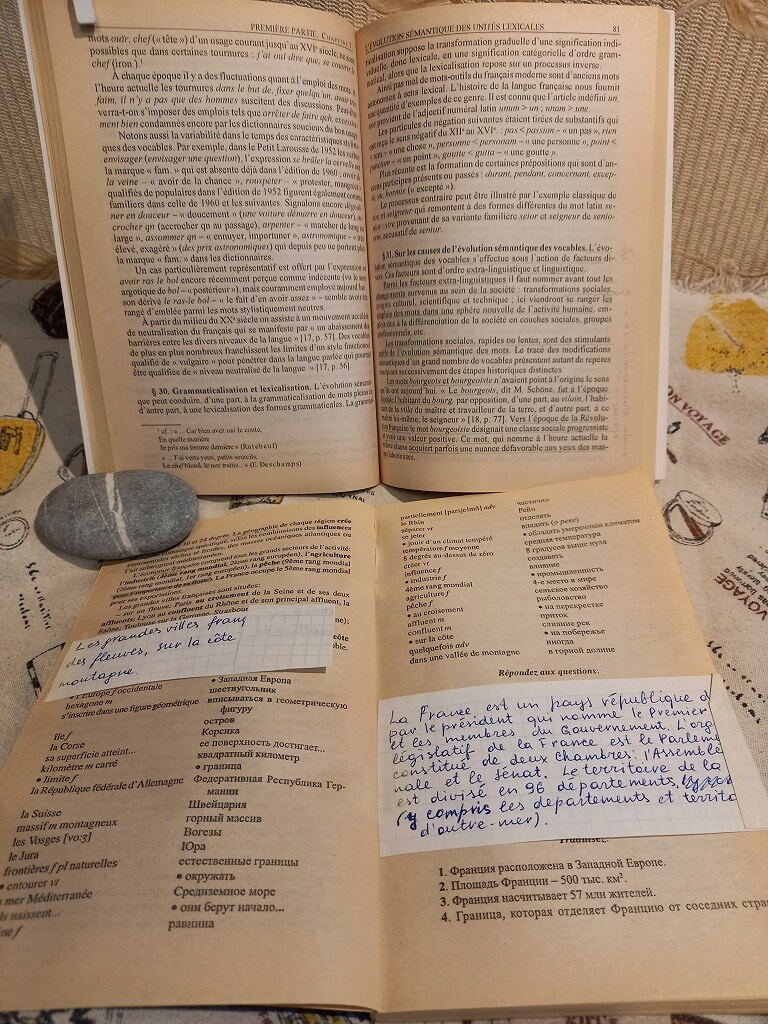 PREMIÈRE PARTIE. CHAPITRE
mots ouïr, chef (« tête ») d'un usage courant jusqu'au XVIᵉ siècle, ne son
possibles que dans certaines tournures : j'ai ouï dire que, se couvrir le
chef (iron.).¹
À chaque époque il y a des fluctuations quant à l'emploi des mots
l'heure actuelle les tournures dans le but de, fixer quelqu'un, avoir
faim, il n'y a pas que des hommes suscitent des discussions. Peut
verra-t-on s'imposer des emplois tels que arrêter de faire qch.
ment bien condamnés encore par les dictionnaires soucieux du bon usage
Notons aussi la variabilité dans le temps des caractéristiques
ques des vocables. Par exemple, dans le Petit Larousse de 1952 les verbes
envisager (envisager une question), l'expression se brûler la cervelle
la marque « fam. » qui est absente déjà dans l'édition de 1960 ;
la veine – « avoir de la chance », rouspéter – « protester,
qualifiés de populaires dans l'édition de 1952 figurent également comme
familiers dans celle de 1960 et les suivantes. Signalons encore
ner en douceur – « doucement » (une voiture démarre en douceur),
crocher qn (accrocher qn au passage), arpenter – « marcher de long
large », assommer qn – « ennuyer, importuner », astronomique – « très
élevé, exagéré » (des prix astronomiques) qui depuis peu ne portent
la marque « fam. » dans les dictionnaires.
Un cas particulièrement représentatif est offert par l'expression
avoir ras le bol encore récemment perçue comme indécente (vu le sens
argotique de bol – « postérieur »), mais couramment employé aujourd'hui
son dérivé le ras-le-bol – « le fait d'en avoir assez » – semble avoir
rangé d'emblée parmi les mots stylistiquement neutres.
À partir du milieu du XXᵉ siècle on assiste à un mouvement accéléré
de neutralisation du français qui se manifeste par « un abaissement
barrières entre les divers niveaux de la langue » [17, p. 57]. Des vocables
de plus en plus nombreux franchissent les limites d'un style fonctionnel
qualifié de « vulgaire » pour pénétrer dans la langue parlée qui pourrait
être qualifiée de « niveau neutralisé de la langue » [17, p. 56]
§ 30. Grammaticalisation et lexicalisation. L'évolution séman-
que peut conduire, d'une part, à la grammaticalisation de mots pleins et
d'autre part, à une lexicalisation des formes grammaticales. La gramma
¹ cf. : « ... Car bien avez ouï le conte,
En quelle manière
Je pris ma femme dernière » (Rutebeuf)
« ... J'ai vers yeux, petits sourcils,
Le chef blond, le nez traitis... » (E. Deschamps)
L'ÉVOLUTION SÉMANTIQUE DES UNITÉS LEXICALES 81
calisation suppose la transformation graduelle d'une signification indi-
viduelle, donc lexicale, en une signification catégorielle d'ordre gram-
matical, alors que la lexicalisation repose sur un processus inverse.
Ainsi pas mal de mots-outils du français moderne sont d'anciens mots
autonomes à sens lexical. L'histoire de la langue française nous fournit
quantité d'exemples de ce genre. Il est connu que l'article indéfini un,
une provient de l'adjectif numéral latin unum > un ; unam > une.
Les particules de négation suivantes étaient tirées de substantifs qui
reçu le sens négatif du XIIᵉ au XVIᵉ : pas < passum – « un pas », rien
– « une chose », personne < personam – « une personne », point <
punctum – « un point », goutte < gutta – « une goutte ».
Plus récente est la formation de certaines prépositions qui sont d'an-
ciens participes présents ou passés : durant, pendant, concernant, excep-
té, hormis (« excepté »).
Le processus contraire peut être illustré par l'exemple classique de
sire et seigneur qui remontent à des formes différentes du mot latin se-
nior : sire provenant de sa variante familière seior et seigneur de senio-
rem, accusatif de senior.
§ 31. Sur les causes de l'évolution sémantique des vocables. L'évo-
lution sémantique des vocables s'effectue sous l'action de facteurs di-
vers. Ces facteurs sont d'ordre extra-linguistique et linguistique.
Parmi les facteurs extra-linguistiques il faut nommer avant tout les
changements survenus au sein de la société : transformations sociales,
progrès culturel, scientifique et technique ; ici viendront se ranger les
emplois des mots dans une sphère nouvelle de l'activité humaine, em-
plois dus à la différenciation de la société en couches sociales, groupes
professionnels, etc.
Les transformations sociales, rapides ou lentes, sont des stimulants
actifs de l'évolution sémantique des mots. Le tracé des modifications
sémantiques d'un grand nombre de vocables présentent autant de repères
marquant successivement des étapes historiques distinctes.
Les mots bourgeois et bourgeoisie n'avaient point à l'origine le sens
qu'ils ont aujourd'hui. « Le bourgeois, dit M. Schöne, fut à l'époque
féodale l'habitant du bourg, par opposition, d'une part, au vilain, l'habi-
tant de la ville du maître et travailleur de la terre, et d'autre part, à ce
maître lui-même, le seigneur » [18, p. 77]. Vers l'époque de la Révolu-
tion française le mot bourgeoisie désignait une classe sociale progressiste
et avait une valeur positive. Ce mot, qui nomme à l'heure actuelle la
même classe acquiert parfois une nuance défavorable aux yeux des mas-
ses laborieuses.
16 à 24 degrés. La géographie de chaque région crée
L'économie française comprend tous les grands secteurs de l'activité:
l'industrie (4ème rang mondial, 2ème rang européen), l'agriculture
(2ème rang mondial, 1er rang européen), la pêche (9ème rang mondial
pour l'importance de sa flotte). La France occupe le 5ème rang mondial
pour ses exportations.
Les grandes villes françaises sont situées:
– sur un fleuve: Paris au croisement de la Seine et de ses deux
affluents; Lyon au confluent du Rhône et de son principal affluent, la
Saône; Toulouse sur la Garonne, Strasbourg
côte
Les grandes villes franç
des fleuves, sur la côte
montagne.
l'Europe f occidentale • Западная Европа
hexagone m шестиугольник
s'inscrire dans une figure géométrique вписываться в геометрическую
фигуру
île f остров
la Corse Корсика
sa superficie atteint... ее поверхность достигает...
kilomètre m carré квадратный километр
• limite f • граница
la République fédérale d'Allemagne Федеративная Республика Гер-
мании
la Suisse Швейцария
massif m montagneux горный массив
les Vosges [vo:ʒ] Вогезы
le Jura Юра
frontières f pl naturelles естественные границы
• entourer vt • окружать
mer Méditerranée Средиземное море
ils naissent... • они берут начало...
ine f равнина
partiellement [parsjɛlmɑ̃] adv частично
le Rhin Рейн
séparer vt отделять
se jeter впадать (о реке)
• jouir d'un climat tempéré • обладать умеренным климатом
température f moyenne средняя температура
8 degrés au-dessus de zéro 8 градусов выше нуля
créer vt создавать
influence f влияние
• industrie f • промышленность
4ème rang mondial 4-е место в мире
agriculture f сельское хозяйство
pêche f рыболовство
• au croisement • на перекрестке
affluent m приток
confluent m слияние рек
• sur la côte • на побережье
quelquefois adv иногда
dans une vallée de montagne в горной долине
Répondez aux questions:
La France est un pays république d
par le président qui nomme le Premier
et les membres du Gouvernement. L'org
législatif de la France est le Parleme
constitué de deux Chambres: l'Assemblé
nale et le Sénat. Le territoire de la
est divisé en 96 départements.
(y compris les départements et territo
d'outre-mer).
Traduisez:
1. Франция расположена в Западной Европе.
2. Площадь Франции – 500 тыс. км².
3. Франция насчитывает 57 млн жителей.
4. Граница, которая отделяет Францию от соседних стра
VOYAGE
VOYAGE